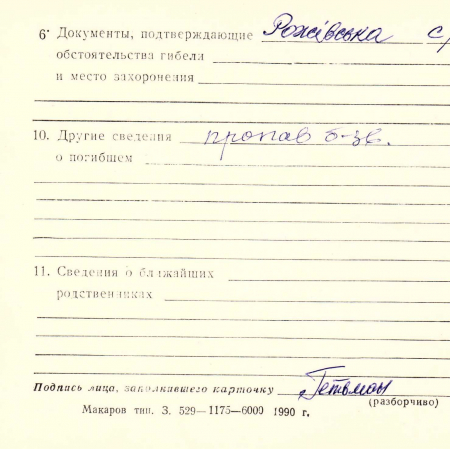 6· Документы, подтверждающие Рожівська с/
обстоятельства гибели
и место захоронения
10. Другие сведения пропав б-зв.
о погибшем
11. Сведения о ближайших
родственниках
Подпись лица, заполнившего карточку Гетьман
(разборчиво)
Макаров тип. З. 529—1175—6000 1990 г.